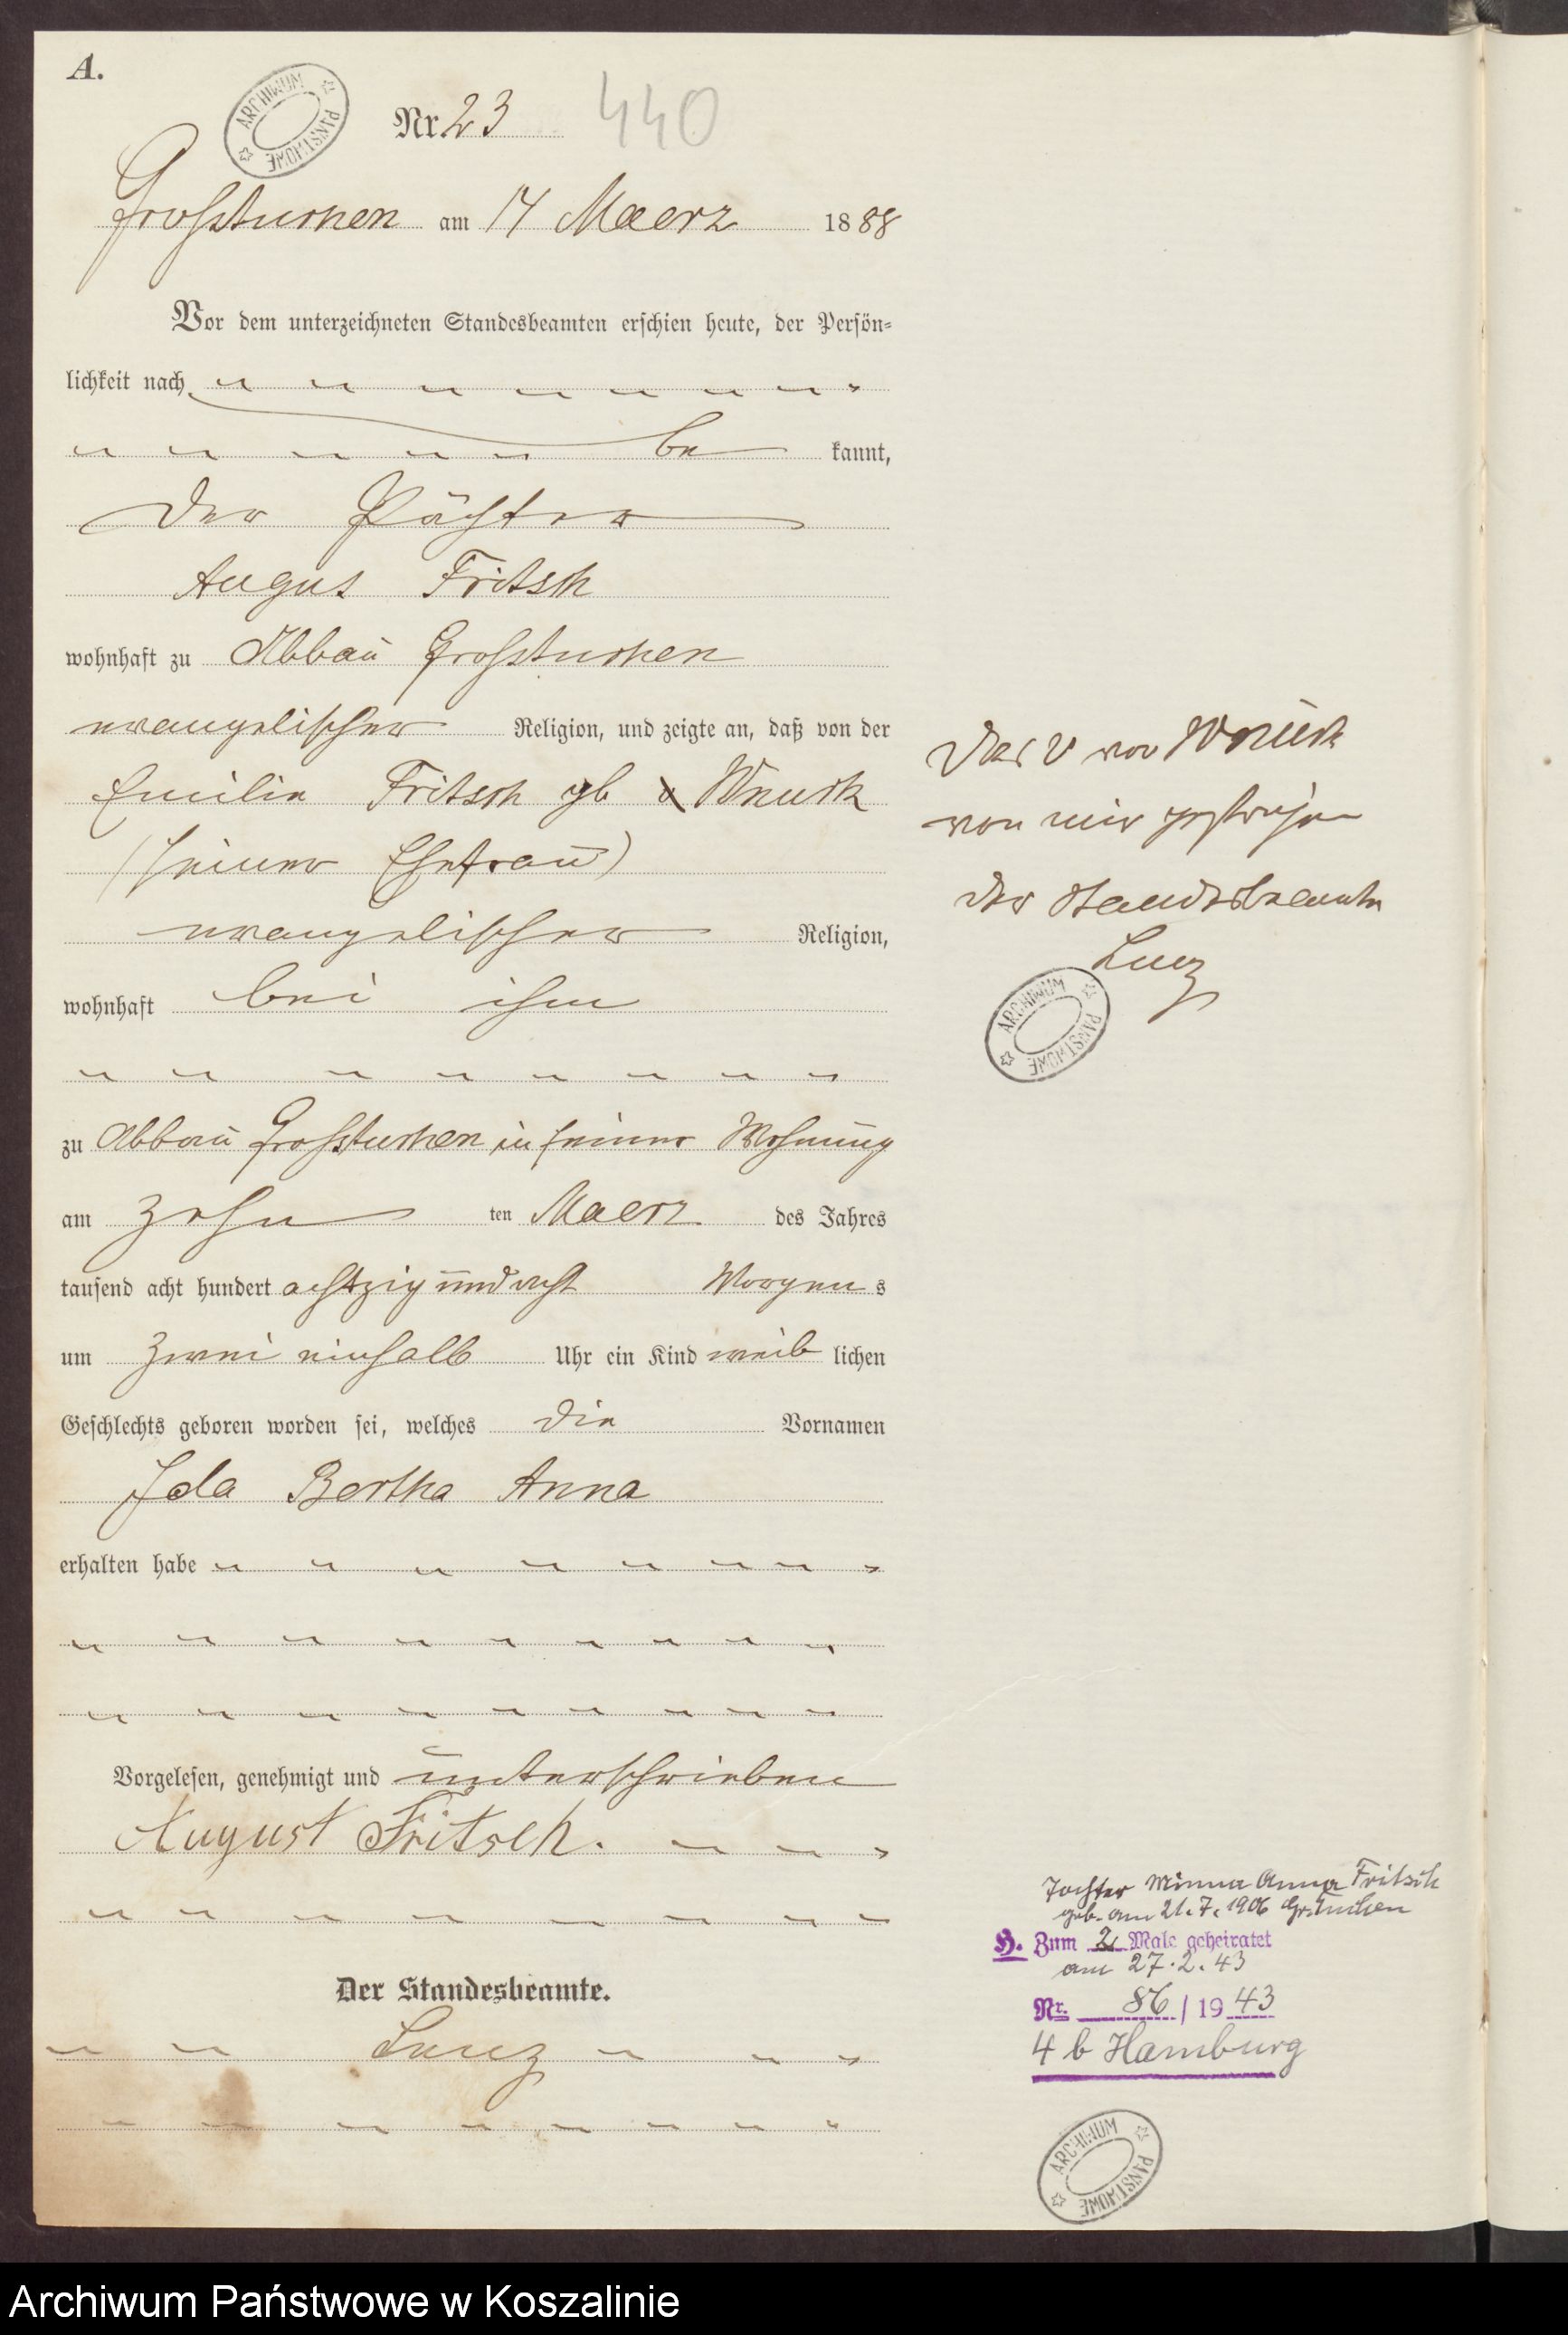 A.
ARCHIWUM PAŃSTWOWE
Nr. 23 440
Großtuchen am 14 Maerz 1888
Vor dem unterzeichneten Standesbeamten erschien heute, der Persön-
lichkeit nach
be kannt,
der Pächter
Augus Fritsch
wohnhaft zu Abbau Großtuchen
evangelischer Religion, und zeigte an, daß von der
Emilie Fritsch gb Wnuck
(seiner Ehefrau)
evangelischer Religion,
wohnhaft bei ihm
zu Abbau Großtuchen in seiner Wohnung
am zehn ten Maerz des Jahres
tausend acht hundert achtzig und acht Morgen s
um zwei einhalb Uhr ein Kind weib lichen
Geschlechts geboren worden sei, welches die Vornamen
Ida Bertha Anna
erhalten habe
Vorgelesen, genehmigt und unterschrieben
August Fritsch.
Der Standesbeamte.
vor Wnuck
von mir gestrichen
der Standesbeamte
ARCHIWUM PAŃSTWOWE
Tochter Minna Anna Fritsch
geb. am 21.7.1906 Gr. Tuchen
H. Zum 2 Male geheiratet
am 27.2.43
Nr. 86 / 19 43
4 b Hamburg
ARCHIWUM PAŃSTWOWE
Archiwum Państwowe w Koszalinie